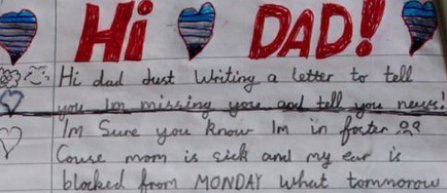 Hi DAD!
Hi dad Just Writing a letter to tell
you Im missing you and tell you news!
Im Sure you know Im in foster
Couse mom is sick and my ear is
blocked from MONDAY what tommorow